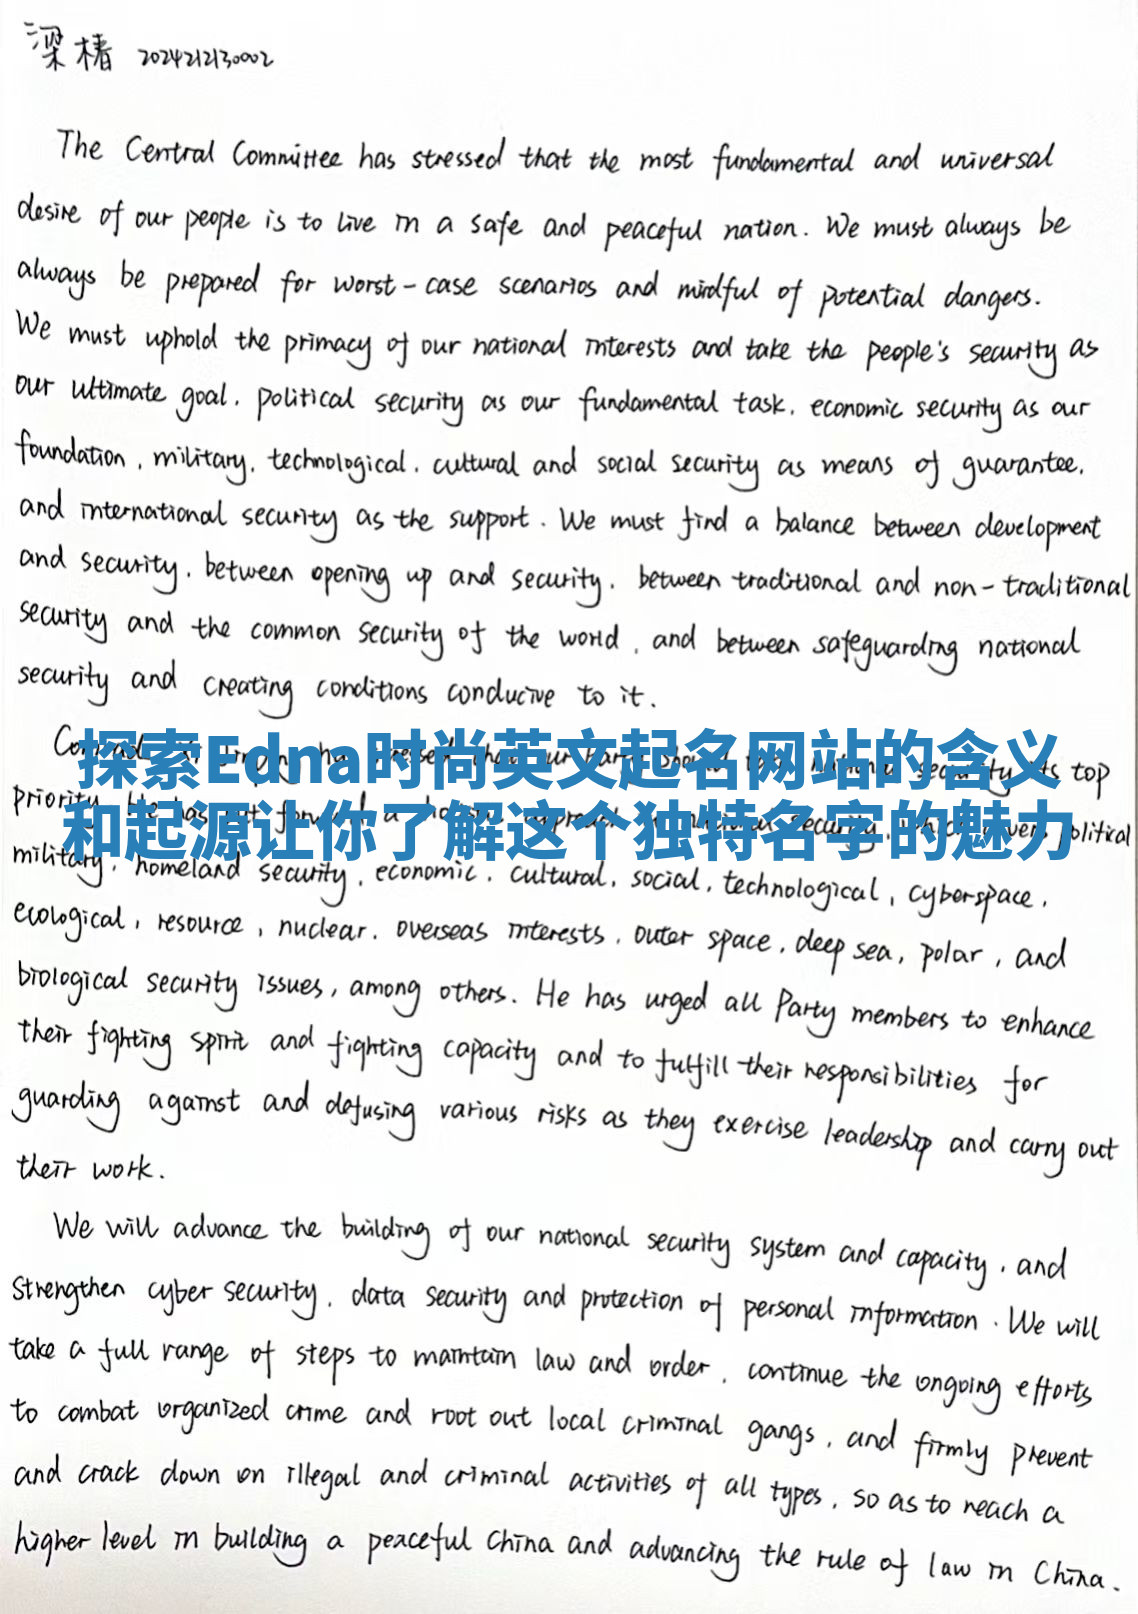 梁椿 2024212130002
The Central Committee has stressed that the most fundamental and universal
desire of our people is to live in a safe and peaceful nation. We must always be
always be prepared for worst-case scenarios and mindful of potential dangers.
We must uphold the primacy of our national interests and take the people's security as
our ultimate goal, political security as our fundamental task, economic security as our
foundation, military, technological, cultural and social security as means of guarantee,
and international security as the support. We must find a balance between development
and security, between opening up and security, between traditional and non-traditional
security and the common security of the world, and between safeguarding national
security and creating conditions conducive to it.
探索Edna时尚英文起名网站的含义
top
priority. He has
和起源让你了解这个独特名字的魅力
security, political
military, homeland security, economic, cultural, social, technological, cyberspace,
ecological, resource, nuclear, overseas interests, outer space, deep sea, polar, and
biological security issues, among others. He has urged all Party members to enhance
their fighting spirit and fighting capacity and to fulfill their responsibilities for
guarding against and defusing various risks as they exercise leadership and carry out
their work.
We will advance the building of our national security system and capacity, and
strengthen cyber security, data security and protection of personal information. We will
take a full range of steps to maintain law and order, continue the ongoing efforts
to combat organized crime and root out local criminal gangs, and firmly prevent
and crack down on illegal and criminal activities of all types, so as to reach a
higher level in building a peaceful China and advancing the rule of law in China.